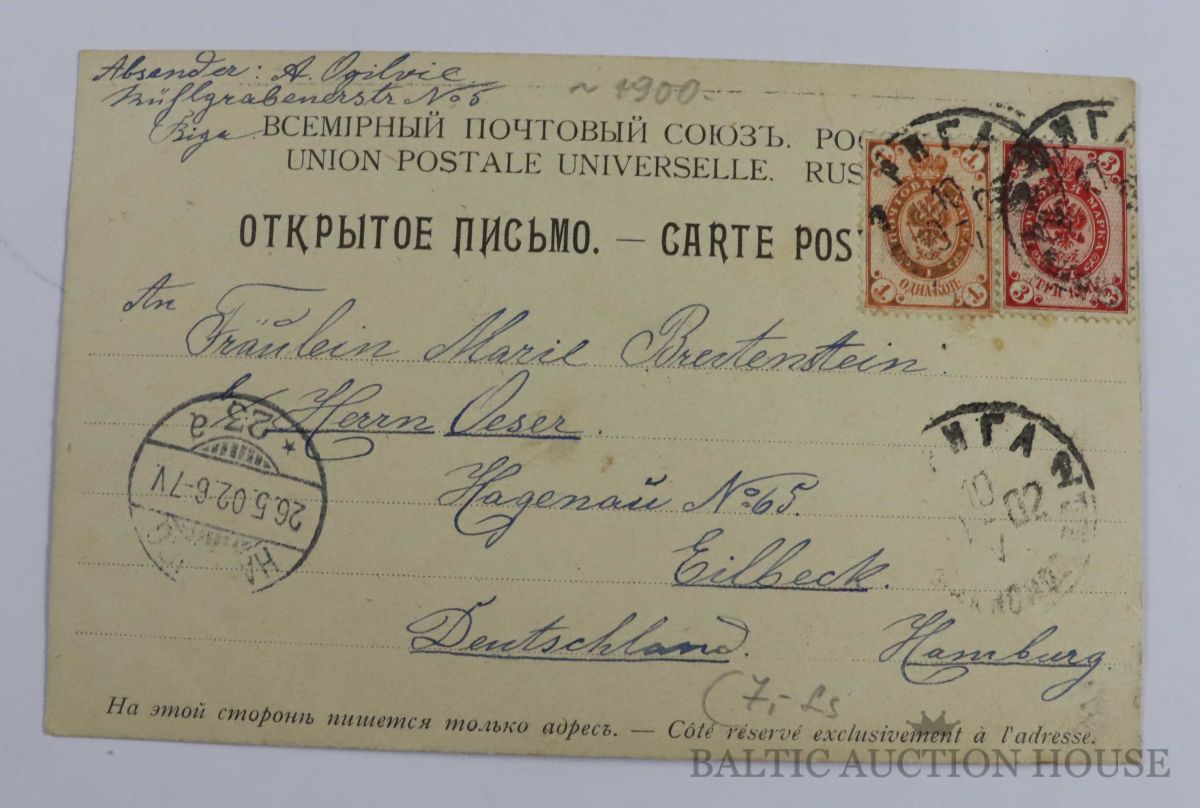 Absender: A. Ogilvie
Mühlgrabenerstr No 5
Riga
~ 1900-
ВСЕМIРНЫЙ ПОЧТОВЫЙ СОЮЗЪ. РОС
UNION POSTALE UNIVERSELLE. RUS
ОТКРЫТОЕ ПИСЬМО. — CARTE POST
РИГА
10
1 1
ПОЧТОВАЯ МАРКА
ОДНА КОП.
1 1
ИГА
3
МАРКА
ТРИ
3
An
Fräulein Marie Breitenstein.
b/ Herrn Oeser.
Hagenau No 65.
Eilbeck.
Deutschland. Hamburg.
* 23 a
26.5.02.6-7V
HA
ИГА
10
V 02
(7,- Ls
На этой сторонѣ пишется только адресъ. — Côté réservé exclusivement à l'adresse.
BALTIC AUCTION HOUSE